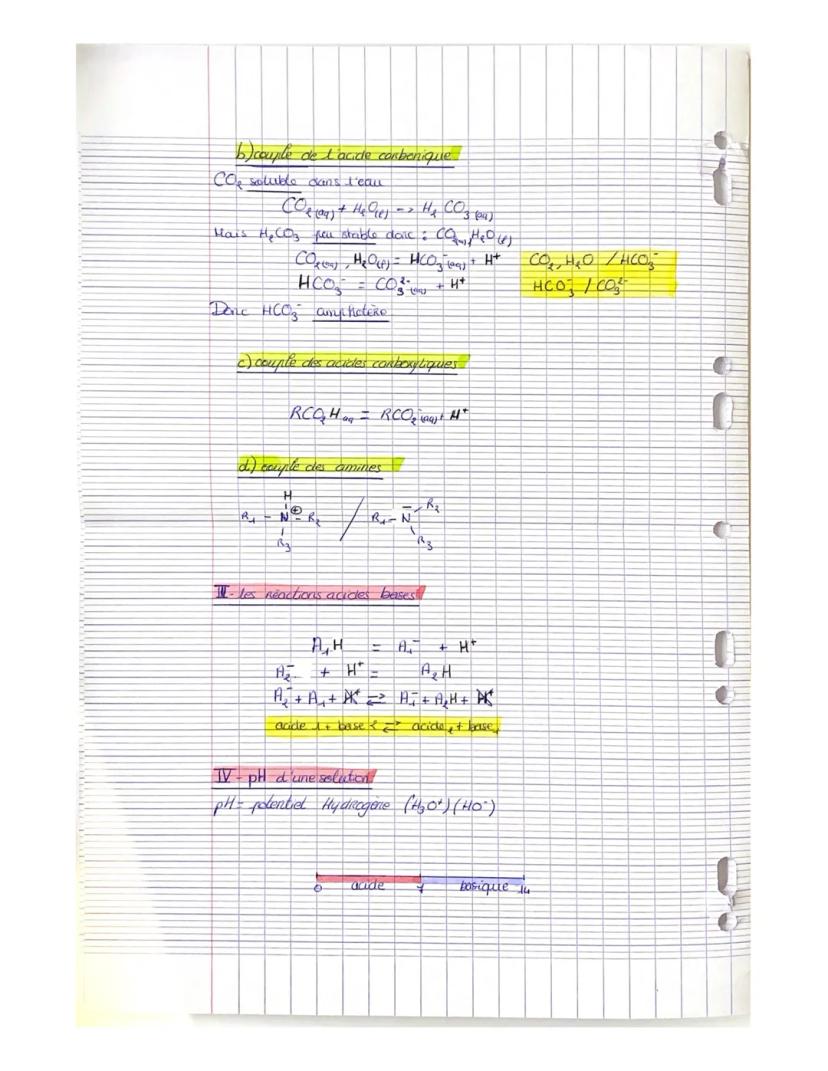 b) couple de l'acide carbonique
CO₂ soluble dans l'eau
CO₂(aq) + H₂O(l) -> H₂CO₃(aq)
Mais H₂CO₃ peu stable donc : CO₂(aq), H₂O(l)
CO₂(aq), H₂O(l) = HCO₃⁻(aq) + H⁺ CO₂, H₂O / HCO₃⁻
HCO₃⁻ = CO₃²⁻(aq) + H⁺ HCO₃⁻ / CO₃²⁻
Donc HCO₃⁻ amphotère
c) couple des acides carboxyliques
RCO₂H aq = RCO₂⁻(aq) + H⁺
d) couple des amines
H
R₁ - N⊕ - R₂ / R₁ - N - R₂
R₃ R₃
III - les réactions acides bases
A₁H = A₁⁻ + H⁺
A₂⁻ + H⁺ = A₂H
A₂⁻ + A₁ + H⁺ ⇄ A₁⁻ + A₂H + H⁺
acide 1 + base 2 ⇄ acide₂ + base₁
IV - pH d'une solution
pH = potentiel Hydrogène (H₃O⁺) (HO⁻)
acide basique
0 7 14